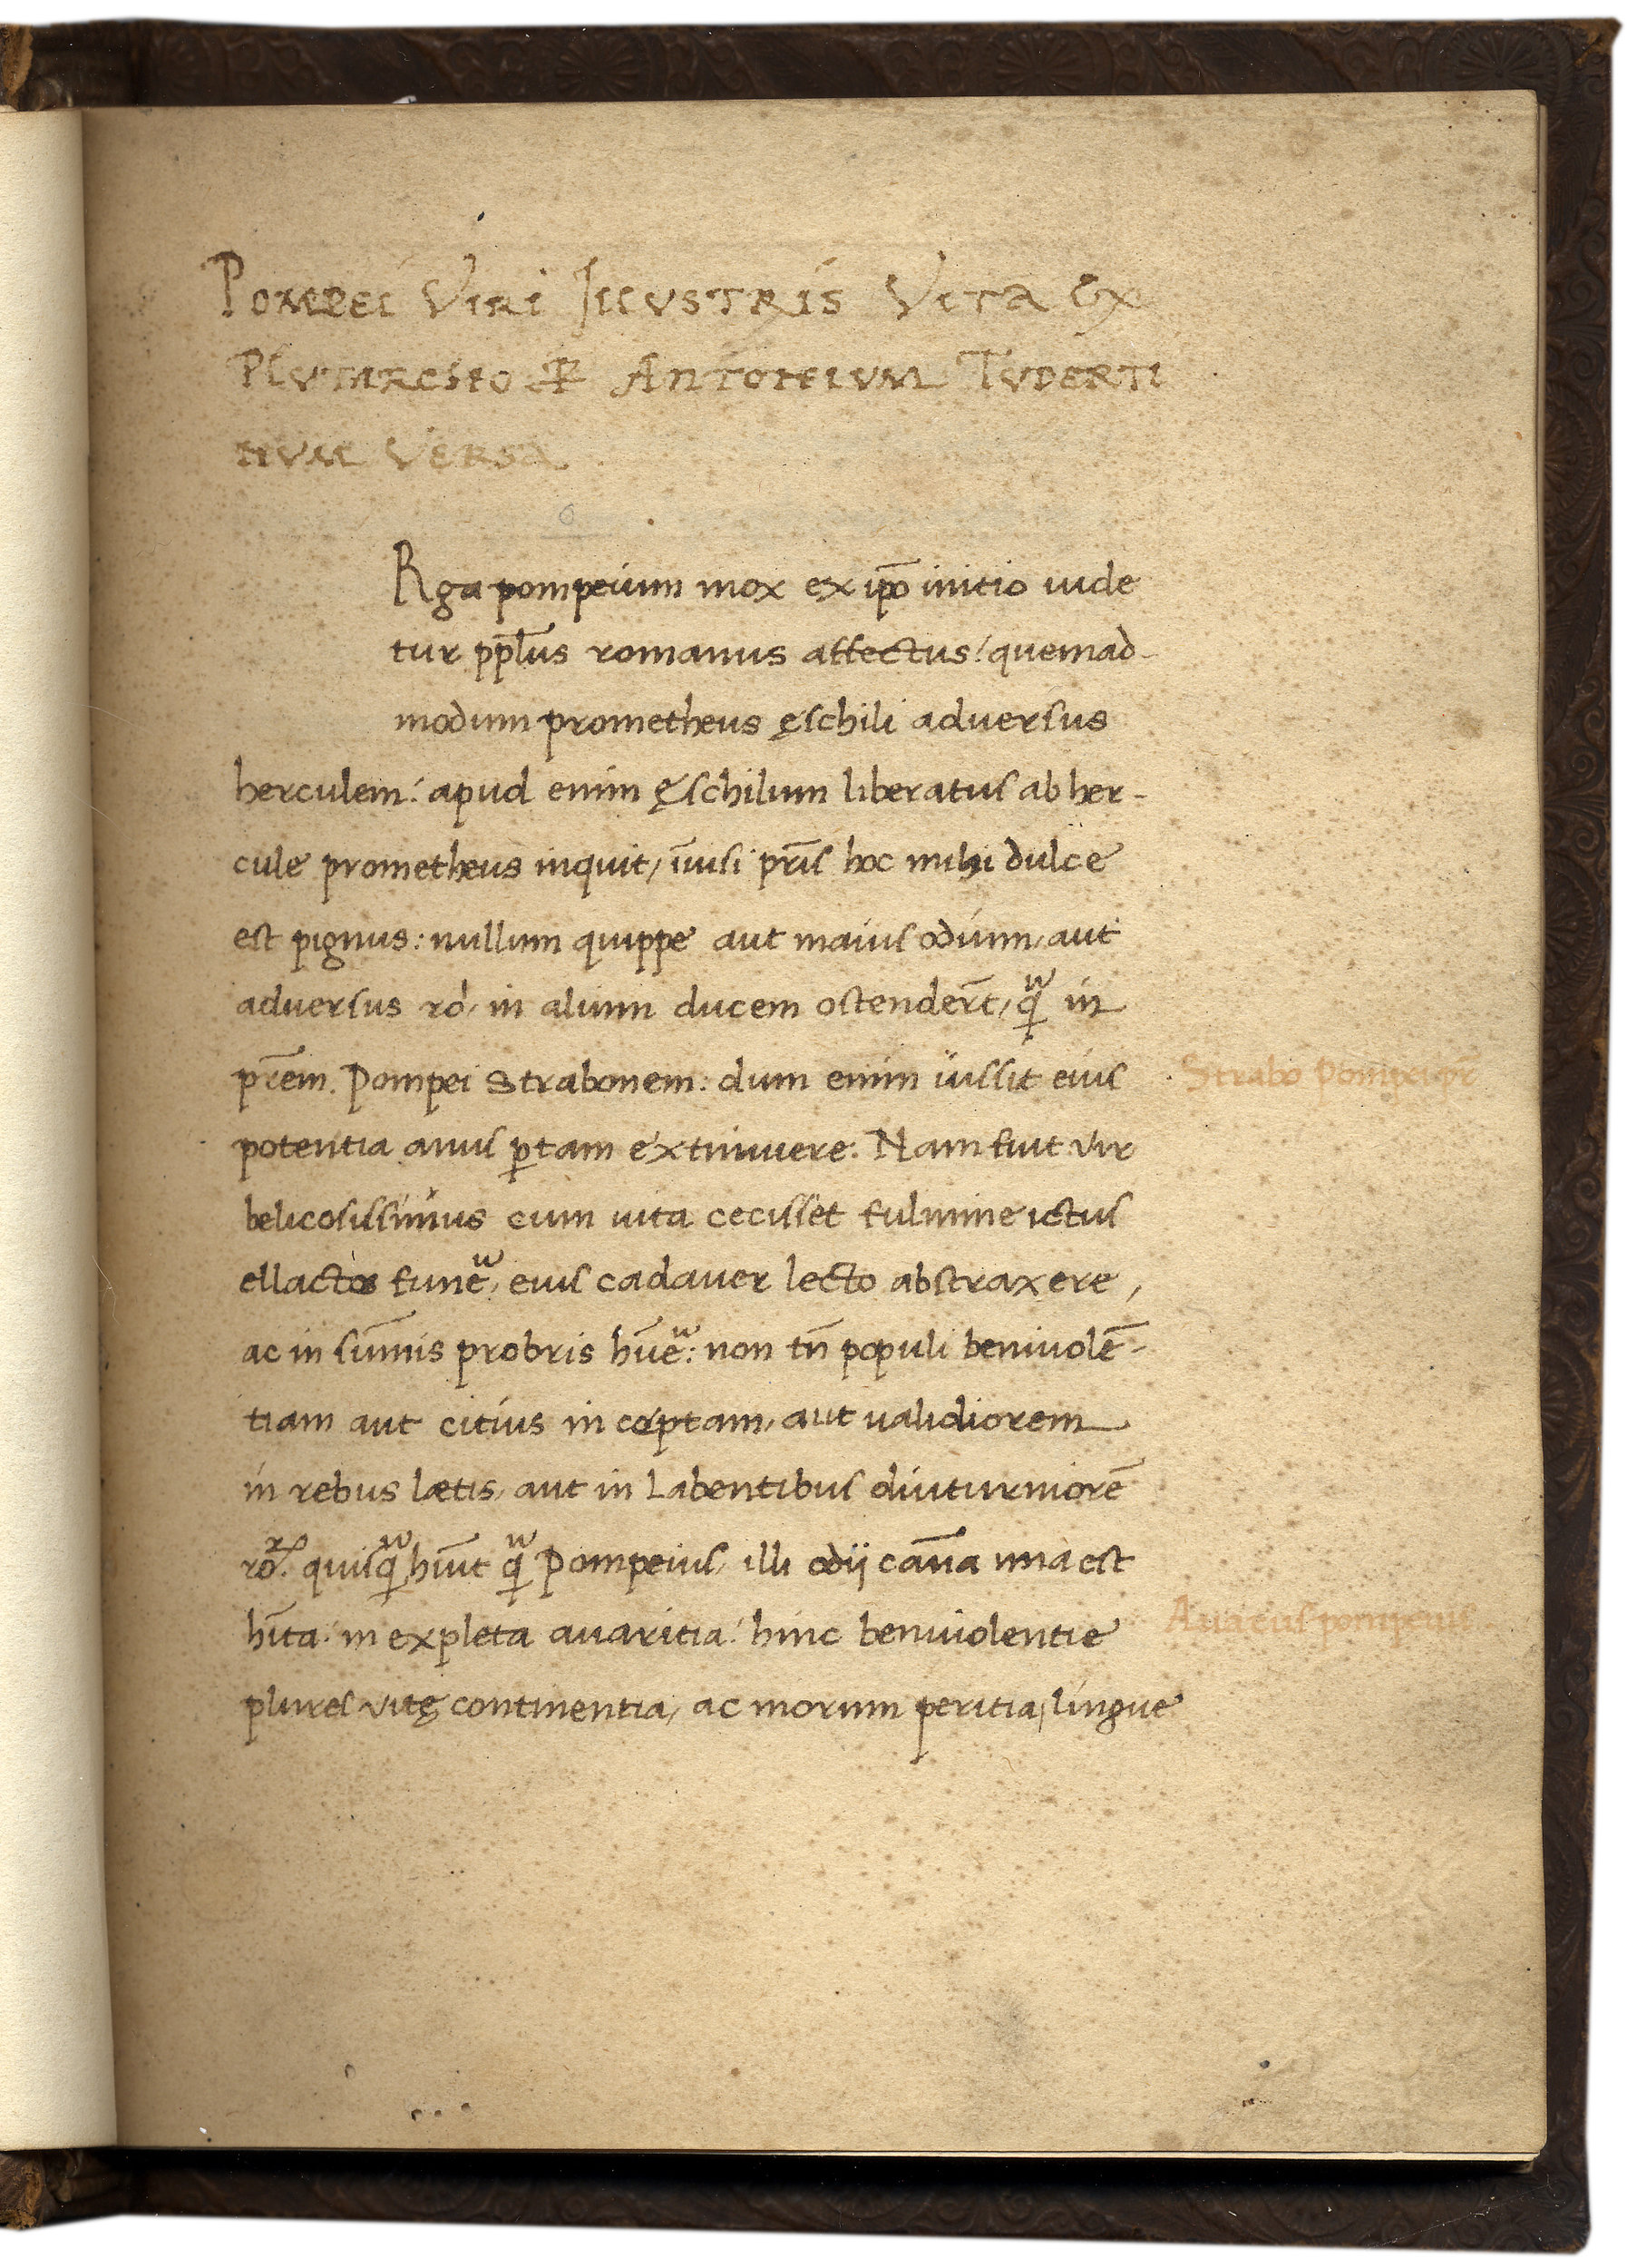 Pompei Viri Illustris Vita Ex
Plutarcho Ꝑ Antonium Tuderti
num Versa
Rga pompeium mox ex ip̄o initio uide
tur pp̄lus romanus affectus: quemad-
modum prometheus ęschili aduersus
herculem: apud enim ęschilum liberatus ab her-
cule prometheus inquit, īuisi pr̄is hoc mihi dulce
est pignus: nullum quippe aut maius odium, aut
aduersus ro, in alium ducem ostender̄t, qͣ in
pr̄em. Pompei Strabonem: dum enim iussit eius
Strabo Pompei pr̄
potentia anus ꝑtam extimuere: Nam fuit vir
belicosissimus cum uita cecisset fulmine ictus
ellacto funeͣ, eius cadauer lecto abstraxere,
ac in sum̄is probris hūeͣ: non tn̄ populi beniuolē-
tiam aut citius in coeptam, aut ualidiorem
in rebus lætis, aut in Labentibus diuturniorē
roꝝ. quisqͣ hīut qͣ Pompeius, illi odij cau̅a una est
hīta: in expleta auaritia: hinc beniuolentie
Auarus pompeius
plures vitę continentia, ac morum peritia, lingue